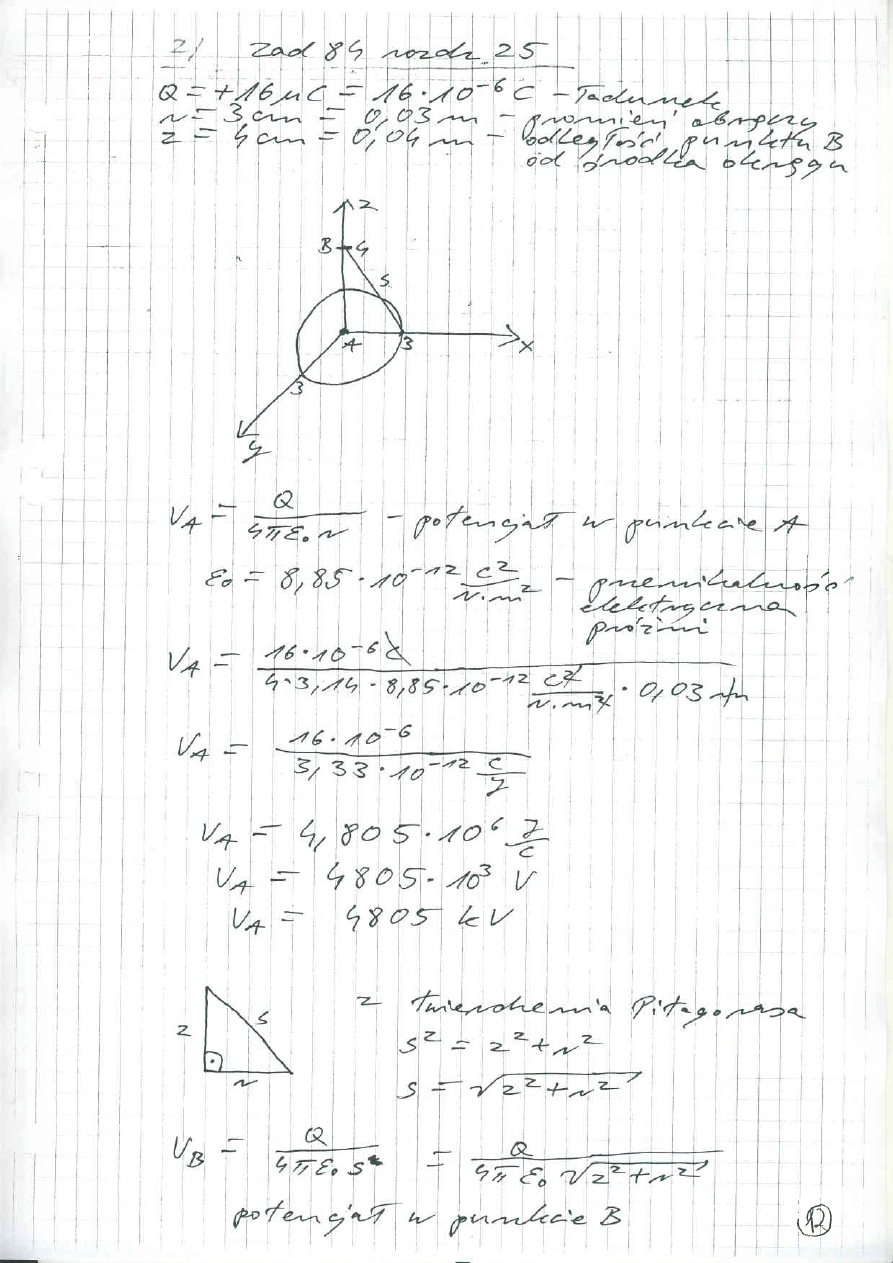 2) Zad 84 rozdz. 25
Q = +16 μC = 16·10⁻⁶ C – ładunek
r = 3 cm = 0,03 m – promień obręczy
z = 4 cm = 0,04 m – odległość punktu B
od środka okręgu
z
B 4
s
A 3 x
3
y
V_A = Q / (4πε₀r) – potencjał w punkcie A
ε₀ = 8,85·10⁻¹² C²/(N·m²) – przenikalność
elektryczna
próżni
V_A = 16·10⁻⁶ C / (4·3,14·8,85·10⁻¹² C²/(N·m²)·0,03 m)
V_A = 16·10⁻⁶ / (3,33·10⁻¹² C/J)
V_A = 4,805·10⁶ J/C
V_A = 4805·10³ V
V_A = 4805 kV
z s r
z twierdzenia Pitagorasa
s² = z² + r²
s = √(z² + r²)
V_B = Q / (4πε₀ s) = Q / (4πε₀ √(z² + r²))
potencjał w punkcie B
12